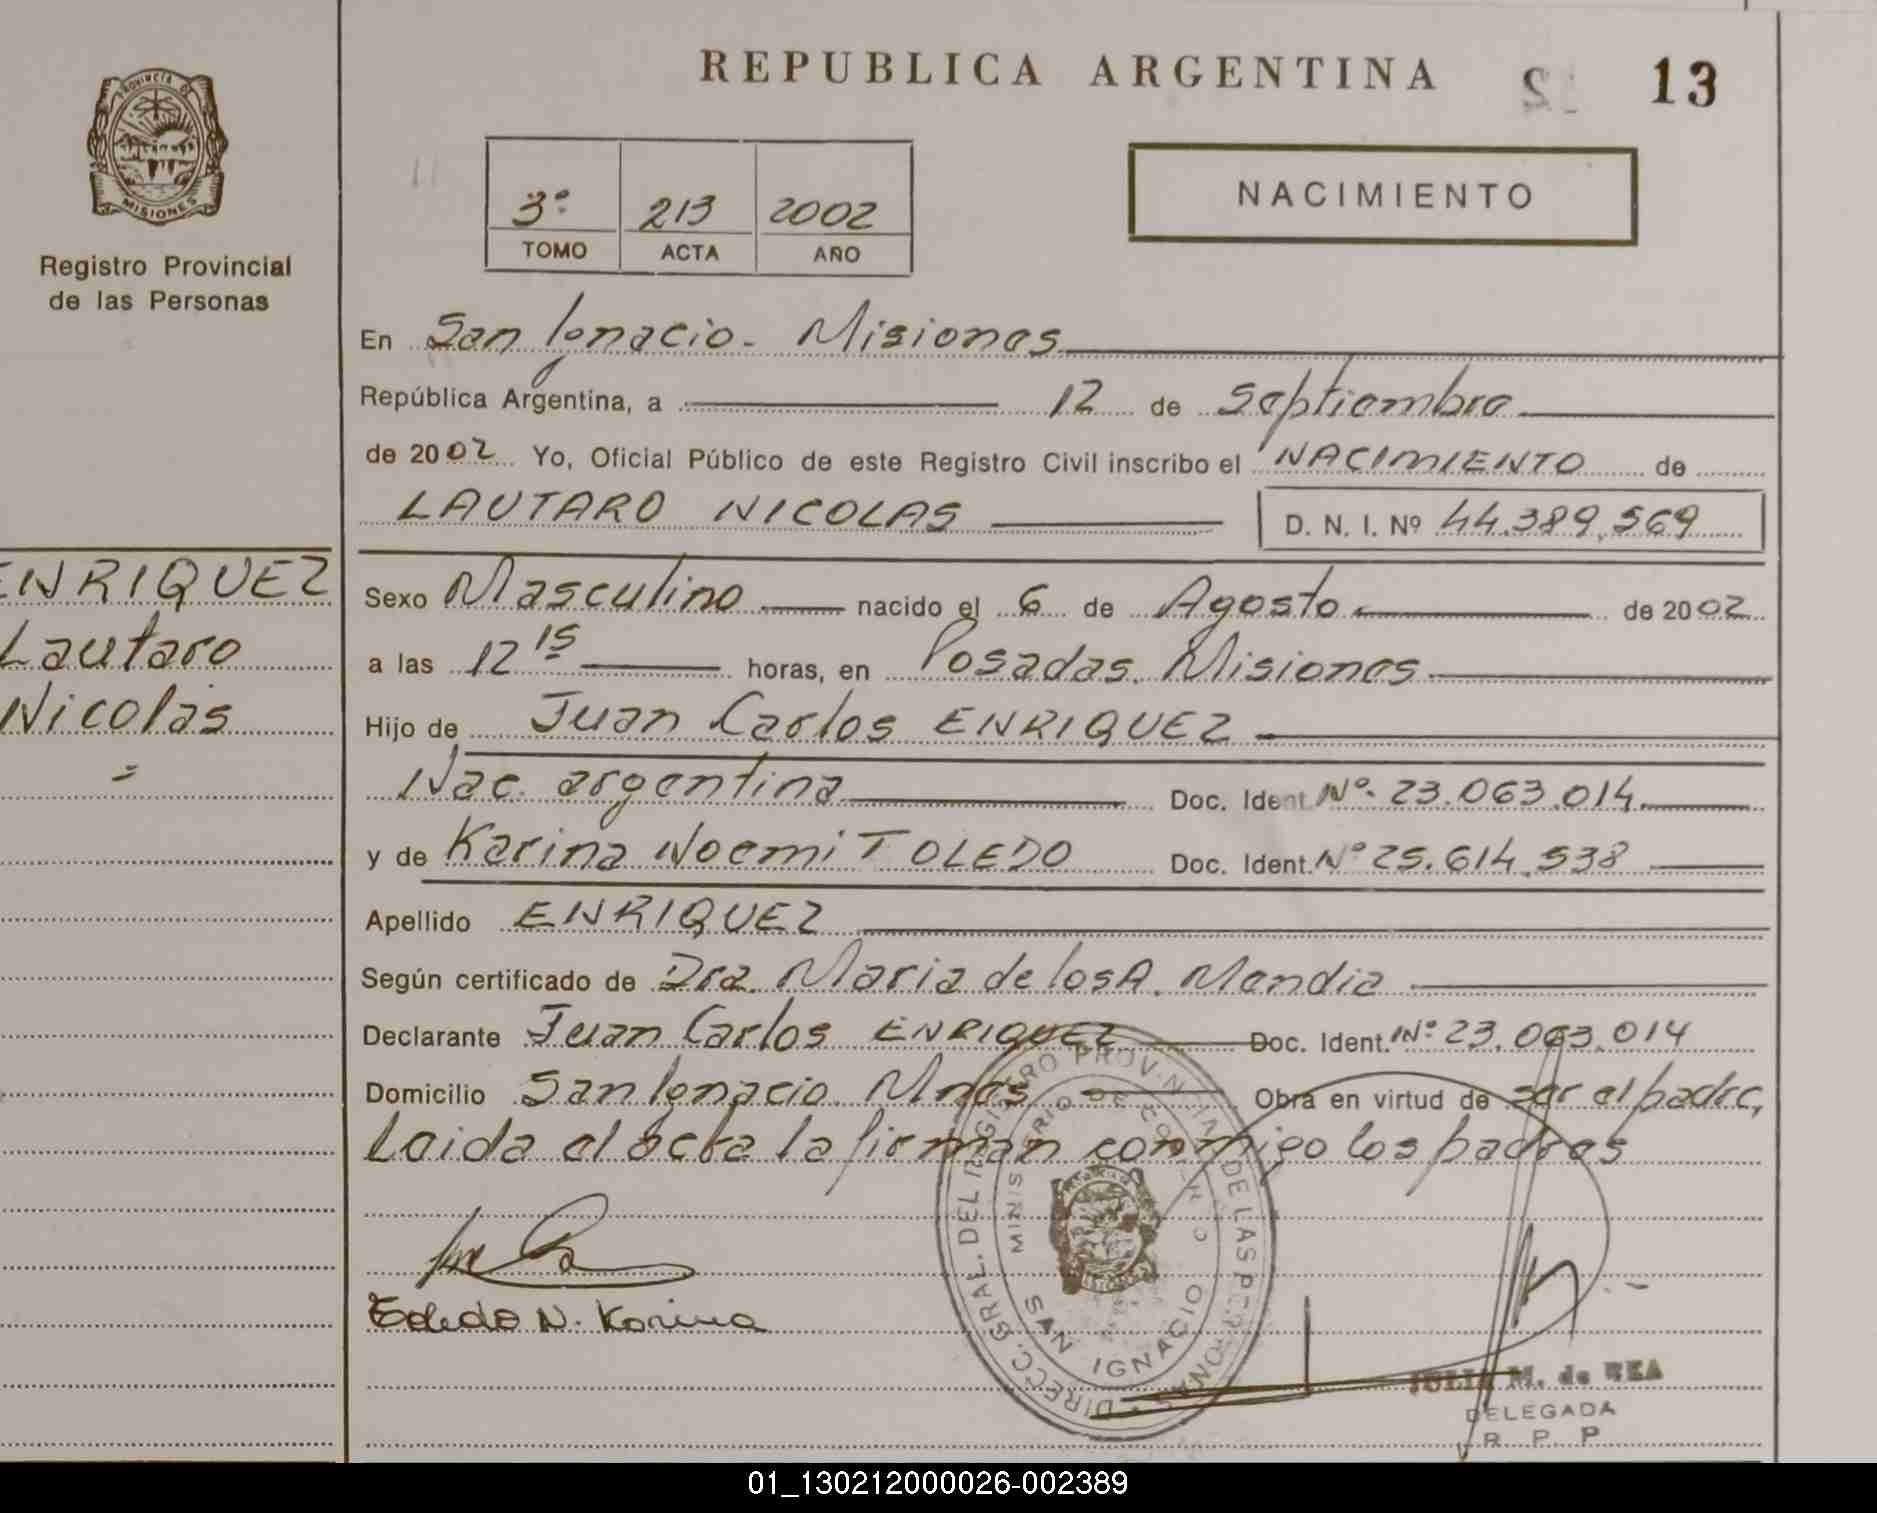 REPUBLICA ARGENTINA
13
PROVINCIA DE
MISIONES
Registro Provincial
de las Personas
3º 213 2002
TOMO ACTA AÑO
NACIMIENTO
En San Ignacio - Misiones
República Argentina, a 12 de Septiembre
de 2002 Yo, Oficial Público de este Registro Civil inscribo el NACIMIENTO de
LAUTARO NICOLAS D. N. I. Nº 44.389.569
ENRIQUEZ
Lautaro
Nicolás
=
Sexo Masculino nacido el 6 de Agosto de 2002
a las 12 15 horas, en Posadas. Misiones
Hijo de Juan Carlos ENRIQUEZ
Nac. argentina Doc. Ident. Nº 23.063.014
y de Karina Noemi TOLEDO Doc. Ident. Nº 25.614.538
Apellido ENRIQUEZ
Según certificado de Dra. Maria de los A. Mendia
Declarante Juan Carlos ENRIQUEZ Doc. Ident. Nº 23.063.014
Domicilio San Ignacio Mnes Obra en virtud de ser el padre,
Leida el acta la firman conmigo los padres
Toledo N. Karina
DIRECC. GRAL. DEL REGISTRO PROVINCIAL DE LAS PERSONAS
SAN IGNACIO
JULIA M. de REA
DELEGADA
R. P. P
01_130212000026-002389